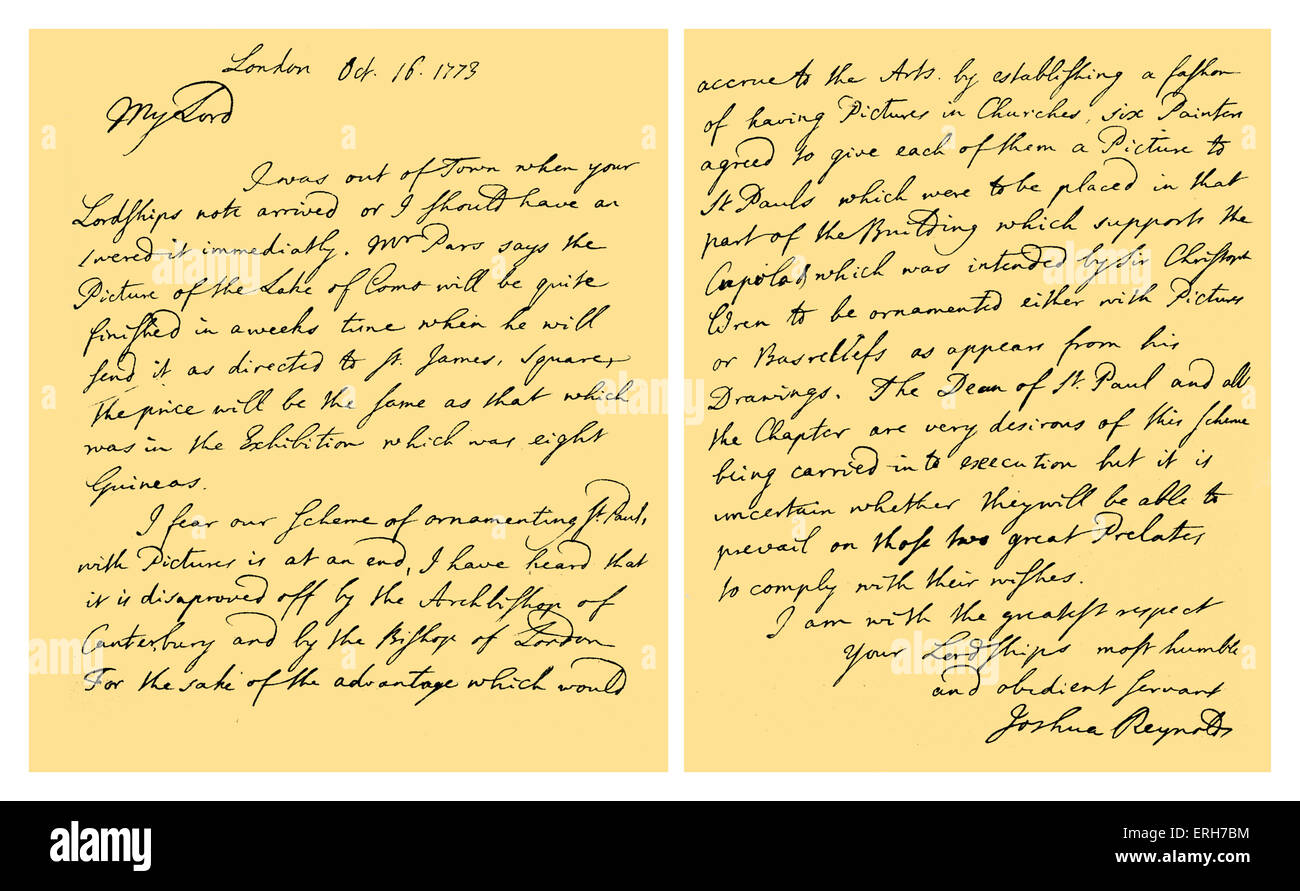 London Oct. 16. 1773
My Lord
I was out of Town when your
Lordships note arrived or I should have an
swered it immediatly. Mr Pars says the
Picture of the Lake of Como will be quite
finished in a weeks time when he will
send it as directed to St. James, Square,
the price will be the same as that which
was in the Exhibition which was eight
Guineas.
I fear our scheme of ornamenting St. Paul,
with Pictures is at an end, I have heard that
it is disaproved off by the Archbishop of
Canterbury and by the Bishop of London
For the sake of the advantage which would
accrue to the Arts. by establishing a fashon
of having Pictures in Churches, six Painters
agreed to give each of them a Picture to
St Pauls which were to be placed in that
part of the Building which supports the
Cupola & which was intended by Sir Christoph
Wren to be ornamented either with Pictures
or Basreliefs as appears from his
Drawings. The Dean of St. Paul and all
the Chapter are very desirous of this scheme
being carried in to execution but it is
uncertain whether they will be able to
prevail on those two great Prelates
to comply with their wishes.
I am with the greatest respect
Your Lordships most humble
and obedient servant
Joshua Reynolds
alamy
a
alamy stock photo
ERH7BM
www.alamy.com